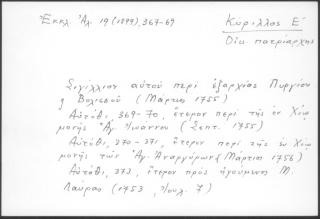 Ἐκκλ. Ἀλ. 19 (1899), 367-69
Κύριλλος Ε´
Οἰκ. πατριάρχης
Σιγίλλιον αὐτοῦ περὶ ἐξαρχίας Πυργίου
ἢ Βολισσοῦ (Μάρτιος 1755)
Αὐτόθι, 369-70, ἕτερον περὶ τῆς ἐν Χίῳ
μονῆς Ἁγ. Ἰωάννου (Σεπτ. 1755)
Αὐτόθι, 370-371, ἕτερον περὶ τῆς ἐν Χίῳ
μονῆς τῶν Ἁγ. Ἀναργύρων (Μάρτιος 1756)
Αὐτόθι, 373, ἕτερον πρὸς ἡγούμενον Μ.
Λαύρας (1753, Ἰουλ. 7)